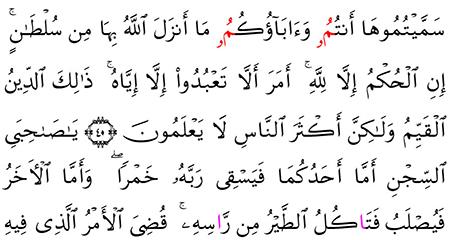 سَمَّيْتُمُوهَا أَنتُمُۥ وَءَابَآؤُكُمُۥ مَا أَنزَلَ اَ۬للَّهُ بِهَا مِن سُلْطَٰنٍۚ
إِنِ اِ۬لْحُكْمُ إِلَّا لِلَّهِۚ أَمَرَ أَلَّا تَعْبُدُواْ إِلَّا إِيَّاهُۚ ذَٰلِكَ اَ۬لدِّينُ
اُ۬لْقَيِّمُ وَلَٰكِنَّ أَكْثَرَ اَ۬لنَّاسِ لَا يَعْلَمُونَ ۝٤٠ يَٰصَٰحِبَيِ
اِ۬لسِّجْنِ أَمَّا أَحَدُكُمَا فَيَسْقِى رَبَّهُۥ خَمْرࣰاۖ وَأَمَّا اَ۬لْأٓخَرُ
فَيُصْلَبُ فَتَاكُلُ اُ۬لطَّيْرُ مِن رَّاسِهِۦۚ قُضِىَ اَ۬لْأَمْرُ اُ۬لَّذِى فِيهِ